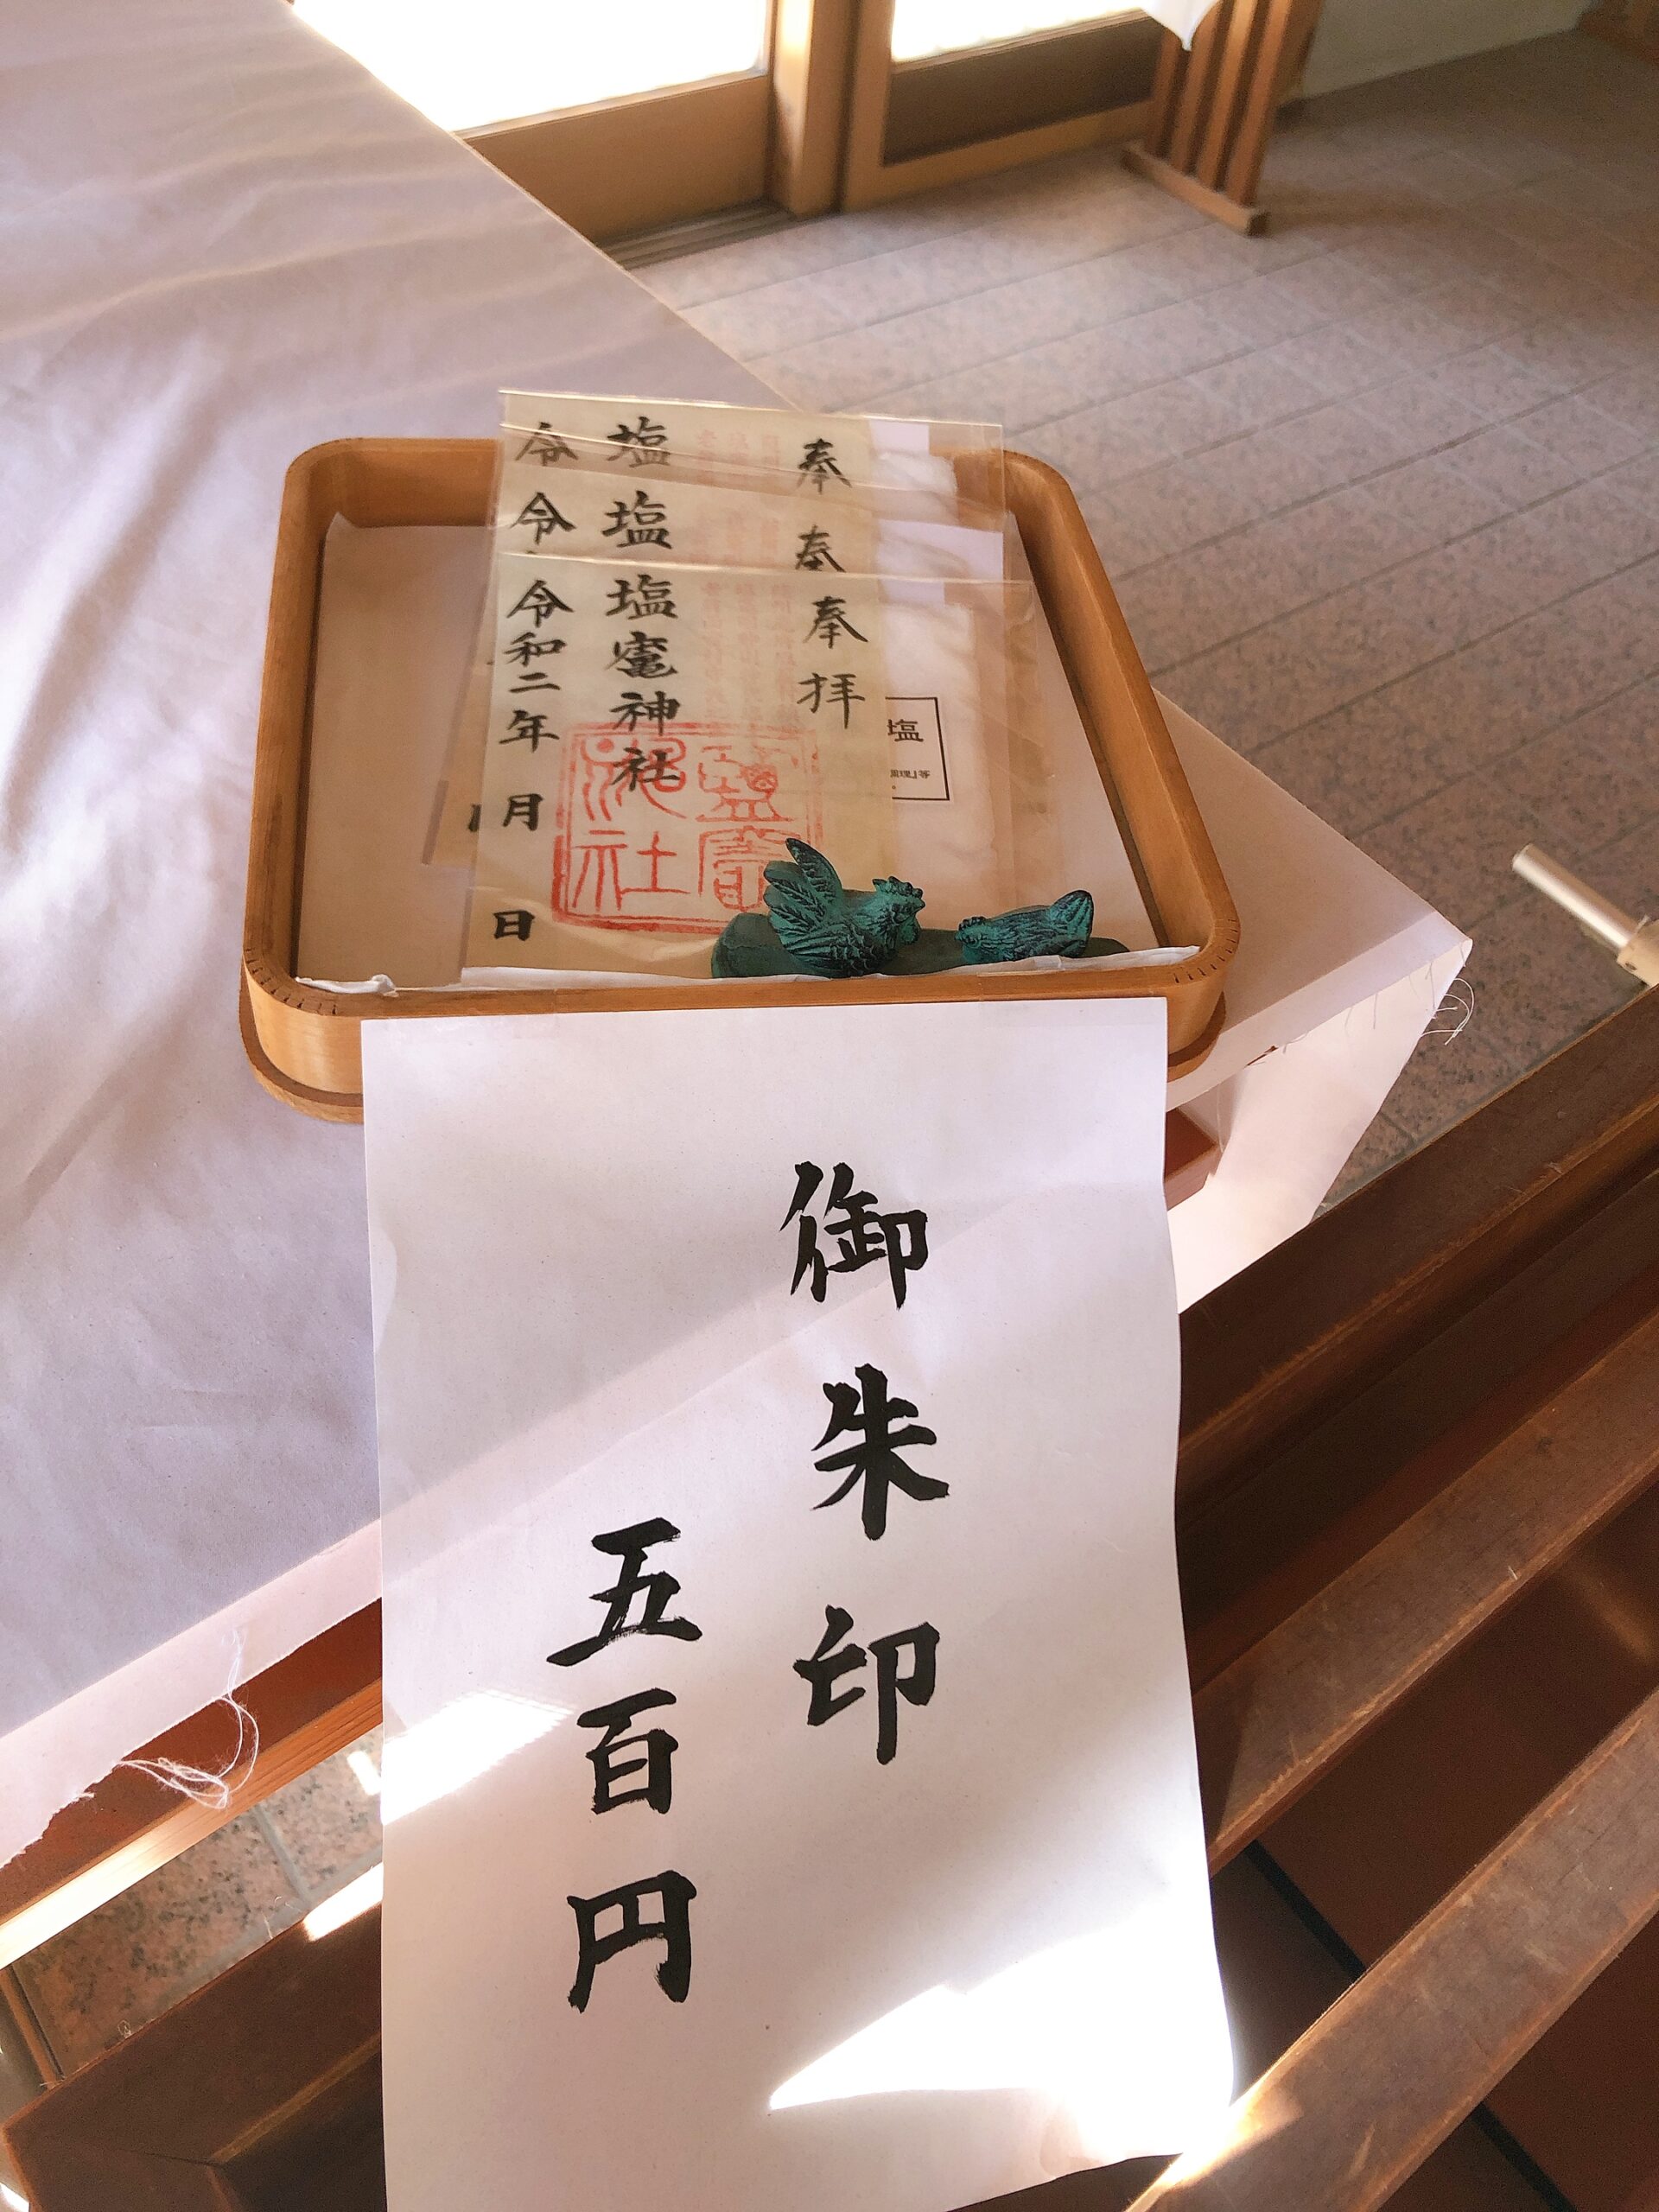 奉
奉
奉拝
塩
塩
塩竈神社
令
令
令和二年 月 日
塩
御朱印
五百円